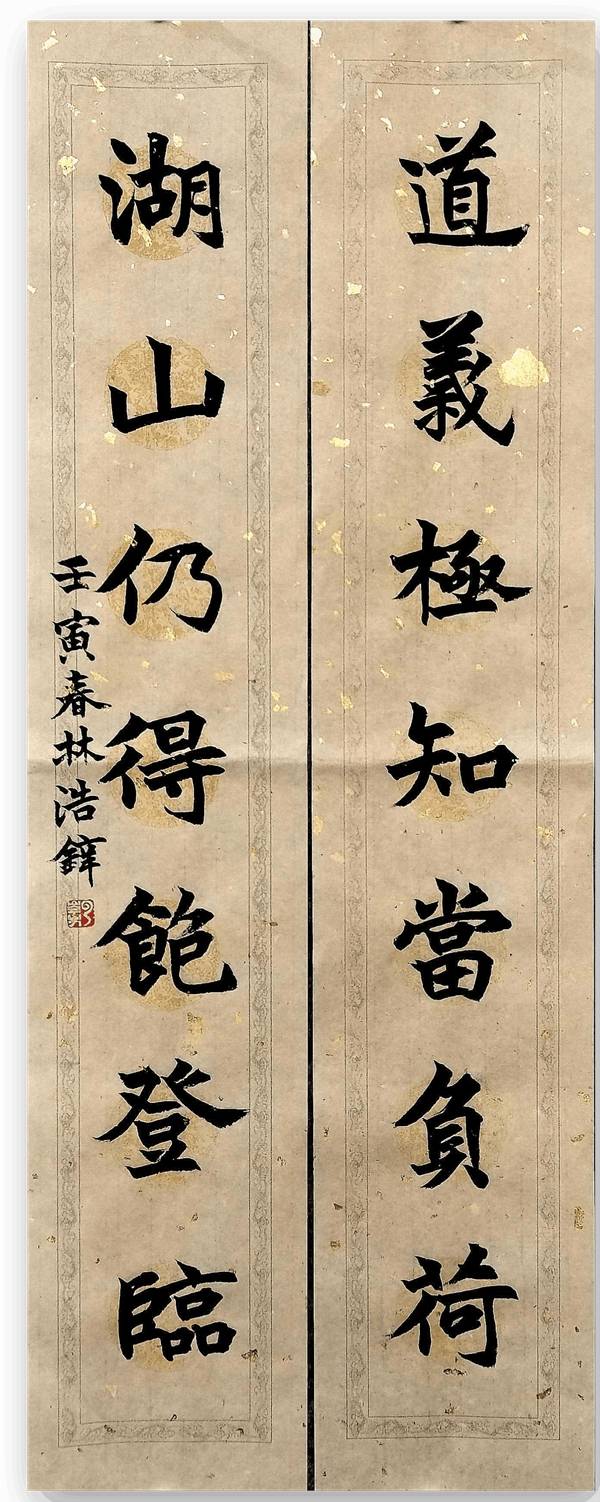 道義極知當負荷
湖山仍得飽登臨
壬寅春林浩鋅